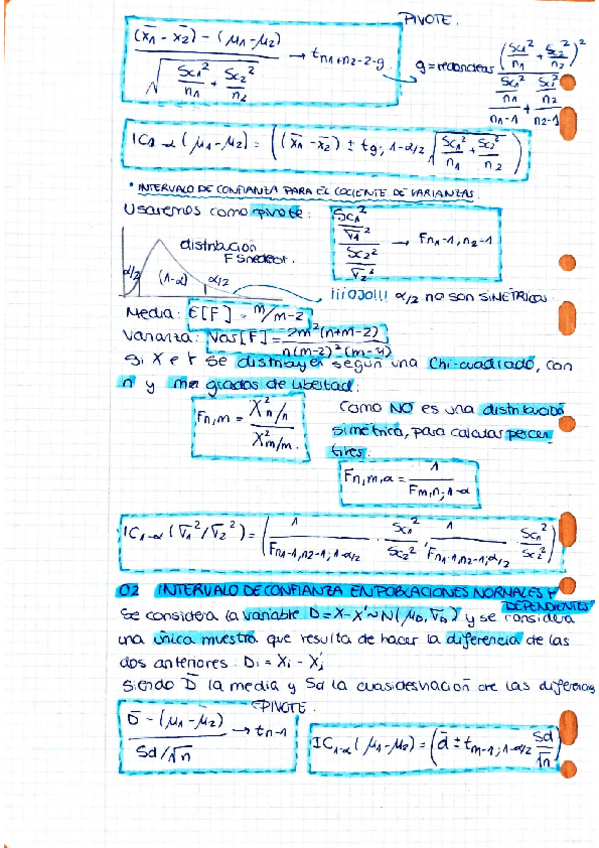 PIVOTE.
(x̄₁ - x̄₂) - (μ₁ - μ₂) / √(Sc₁²/n₁ + Sc₂²/n₂) → t n₁+n₂-2-g
g = redondear (Sc₁²/n₁ + Sc₂²/n₂)² / (Sc₁²/n₁ / n₁-1 + Sc₂²/n₂ / n₂-1)
IC₁₋α (μ₁-μ₂) = ((x̄₁ - x̄₂) ± t g, 1-α/2 √(Sc₁²/n₁ + Sc₂²/n₂))
* INTERVALO DE CONFIANZA PARA EL COCIENTE DE VARIANZAS.
Usaremos como pivote: (Sc₁²/σ₁²) / (Sc₂²/σ₂²) → F n₁-1, n₂-1
distribución
F Snedecor.
α/2 (1-α) α/2
¡¡¡OJO!!! α/2 no son SIMÉTRICOS
Media: E[F] = m/m-2
Varianza: Var[F] = 2m²(n+m-2) / n(m-2)²(m-4)
Si X e Y se distribuyen según una Chi-cuadrado, con
n y m grados de libertad:
F n,m = (X²n/n) / (X²m/m.)
Como NO es una distribución
simétrica, para calcular percen
tiles:
F n,m,α = 1 / F m,n,1-α
IC₁₋α (σ₁²/σ₂²) = (1/F n₁-1,n₂-1; 1-α/2 · Sc₁²/Sc₂², 1/F n₁-1,n₂-1; α/2 · Sc₁²/Sc₂²)
02 INTERVALO DE CONFIANZA EN POBLACIONES NORMALES Y
DEPENDIENTES
Se considera la variable D = X-X' ~ N(μD, σD) y se considera
una única muestra que resulta de hacer la diferencia de las
dos anteriores: Di = Xi - X'i
Siendo D̄ la media y Sd la cuasidesviación de las diferencias
PIVOTE.
D̄ - (μ₁ - μ₂) / Sd/√n → t n-1
IC₁₋α (μ₁ - μ₂) = (d̄ ± t n-1; 1-α/2 Sd/√n)